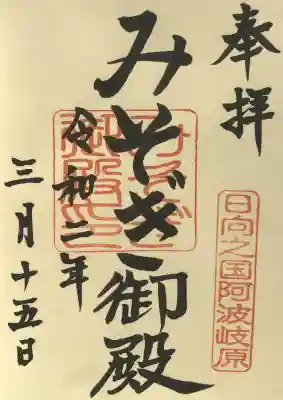 奉拝
日向之国阿波岐原
みそぎ御殿
みそぎ
御殿印
令和二年
三月十五日